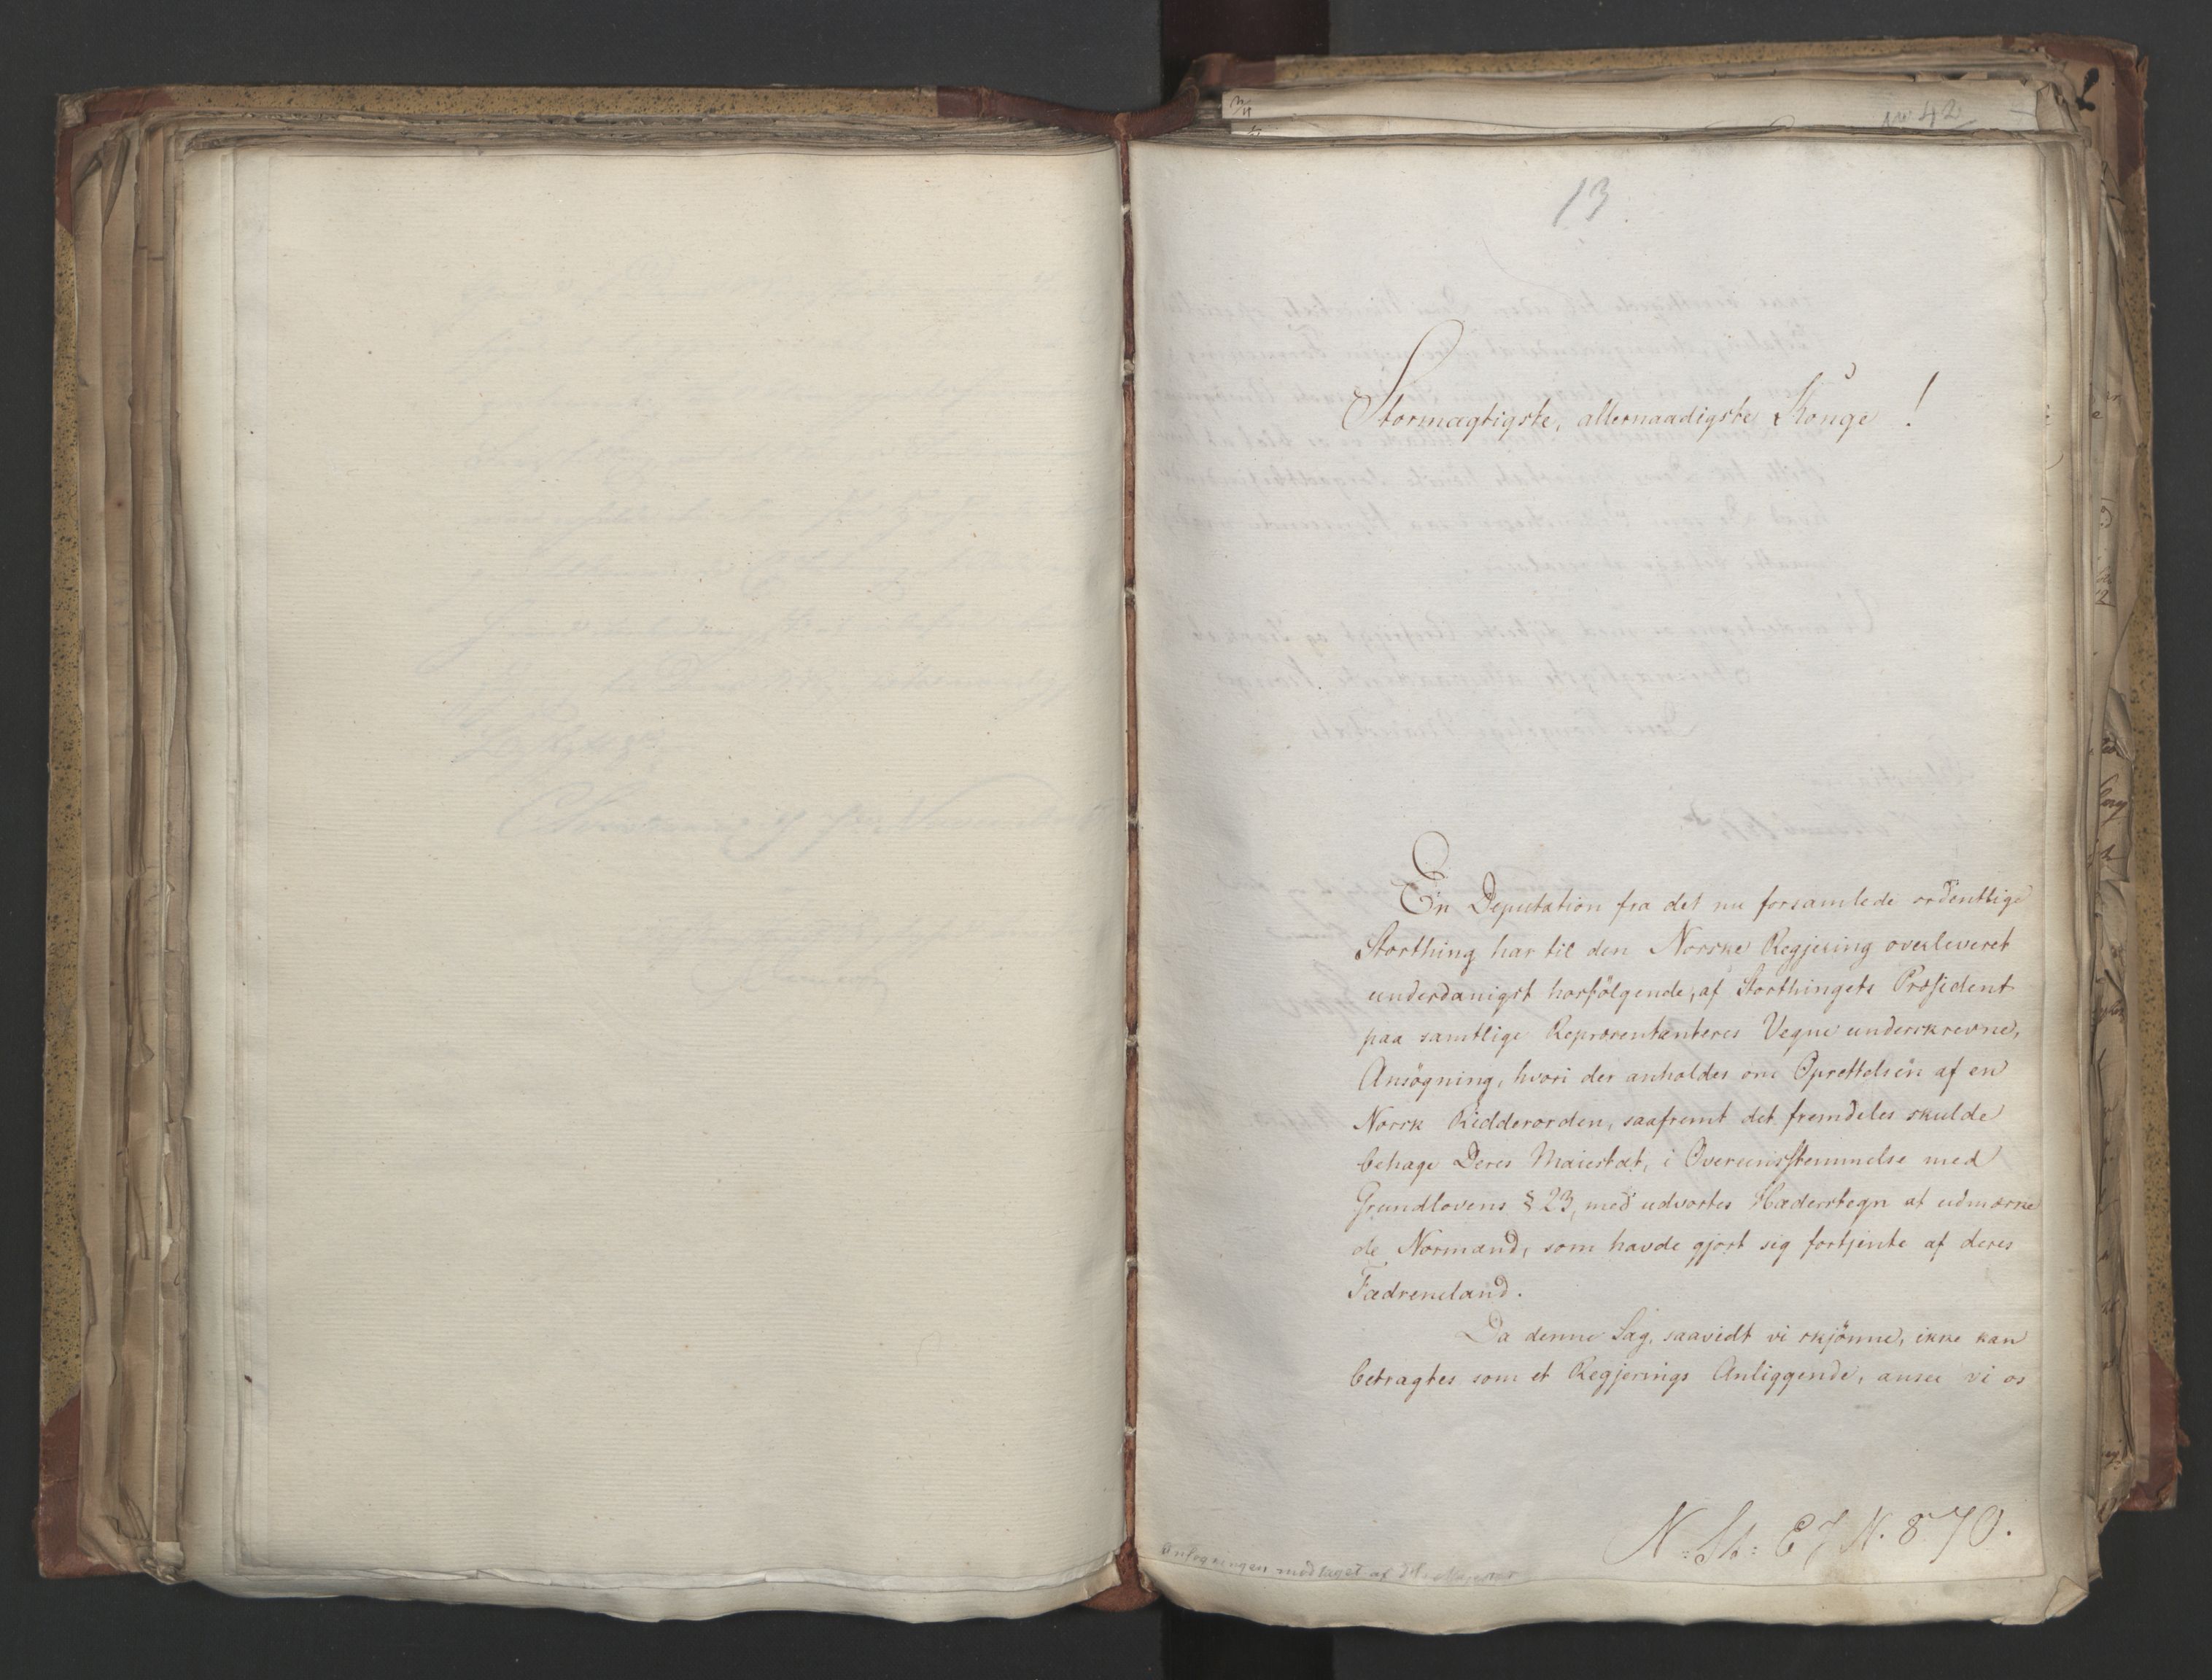 No 42
13
Stormægtigste, allernaadigste Konge!
En Deputation fra det nu forsamlede ordentlige
Storthing har til den Norske Regjering overleveret
underdanigst hosfölgende, af Storthingets Præsident
paa samtlige Repræsentanteres Vegne underskrevne,
Ansögning, hvori der anholdes om Oprettelsen af en
Norsk Ridderorden, saafremt det fremdeles skulde
behage Deres Maiestæt, i Overeensstemmelse med
Grundlovens § 23, med udvortes Hæderstegn at udmærke
de Normænd, som havde gjort sig fortjente af deres
Fædreneland.
Da denne Sag, saavidt vi skjönne, ikke kan
betragtes som et Regjerings Anliggende, ansee vi os
N: St: E J N. 870.
Ansøgningen modtaget af